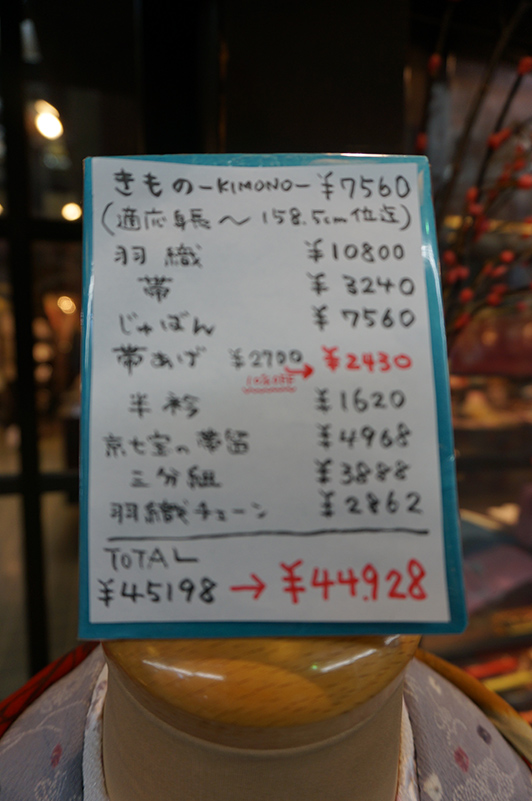 きもの-KIMONO- ¥7560
(適応身長〜158.5cm位迄)
羽織 ¥10800
帯 ¥3240
じゅばん ¥7560
帯あげ ¥2700 → ¥2430
10%OFF
半衿 ¥1620
京七宝の帯留 ¥4968
三分組 ¥3888
羽織チェーン ¥2862
TOTAL
¥45198 → ¥44.928